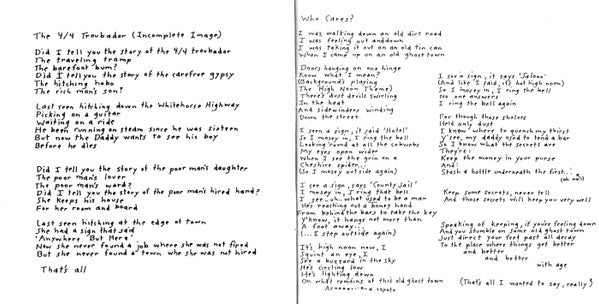 The 4/4 Troubador (Incomplete Image)
Did I tell you the story of the 4/4 troubador
The traveling tramp
The barefoot bum?
Did I tell you the story of the carefree gypsy
The hitching hobo
The rich man's son?
Last seen hitching down the Whitehorse Highway
Picking on a guitar
Waiting on a ride
He been running on steam since he was sixteen
But now the Daddy wants to see his boy
Before he dies
Did I tell you the story of the poor man's daughter
The poor man's lover
The poor man's ward?
Did I tell you the story of the poor man's hired hand?
She keeps his house
For her room and board
Last seen hitching at the edge of town
She had a sign that said
"Anywhere But Here"
Now she never found a job where she was not fired
But she never found a town who she was not hired
That's all
Who Cares?
I was walking down an old dirt road
I was feeling out and down
I was taking it out on an old tin can
When I came up on an old ghost town
Doors hanging on one hinge
Know what I mean?
(Background's playing
The High Noon Theme)
There's dust devils swirling
In the heat
And sidewinders winding
Down the street
I seen a sign, it said 'Hotel'
So I mosey in, I ring the bell
Looking 'round at all the cobwebs
My eyes open wider
When I see the grin on a
Cheshire spider...
(So I mosey out side again)
I see a sign, says 'County Jail'
I mosey in, I ring that bell
I see...uh...what used to be a man
He's reaching out a boney hand
From behind the bars to take the key
Y'know, it hangs not more than
A foot away...
(...I step outside again)
It's high noon now, I
Squint an eye, I
See a buzzard in the sky
He's circling low
He's lighting down
On what's remains of this old ghost town
a coyote
I see a sign, it says 'Saloon'
(And like I said, it's hot high noon)
So I mosey in, I ring the bell
No one answers
I ring the bell again
For though those shelves
Held only dust
I know where to quench my thirst
Y'see, my daddy used to tend a bar
So I know what the secrets are
They're:
Keep the money in your purse
And:
Stash a bottle underneath the first...
(oh rats)
Keep some secrets, never tell
And those secrets will keep you very well
Speaking of keeping, if you're feeling down
And you stumble on some old ghost town
Just direct your feet past all decay
To the place where things get better
and better
and better
with age
(That's all I wanted to say, really)